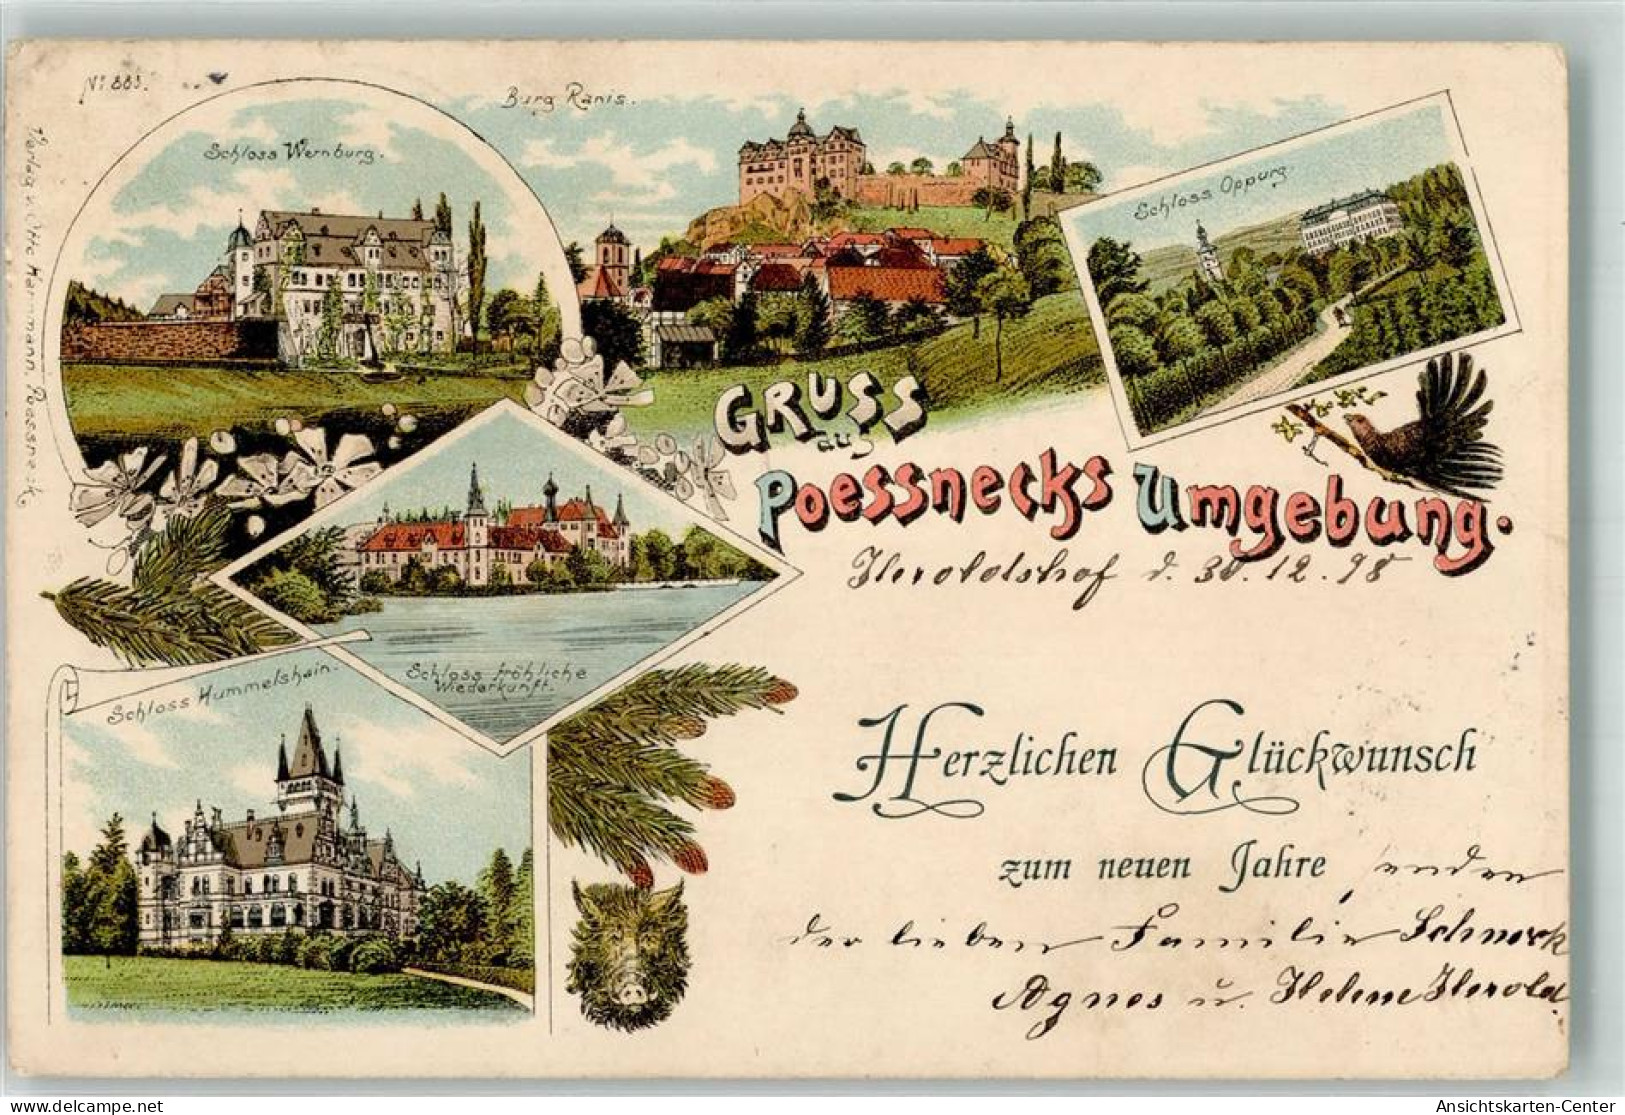 No 883.
Burg Ranis.
Schloss Wernburg.
Schloss Oppurg
Verlag v. Otto Herrmann, Poessneck.
GRUSS
aus
Poessnecks Umgebung.
Heroldshof d. 30.12.98
Schloss fröhliche
Wiederkunft.
Schloss Hummelshain.
Herzlichen Glückwunsch
zum neuen Jahre senden
der lieben Familie
Agnes u. Helene Herold.
delcampe.net
Ansichtskarten-Center